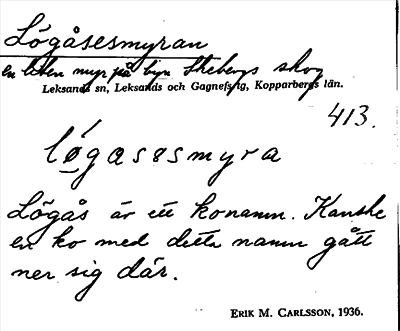 Lögåsesmyran
en liten myr på byn Åkebergs skog
Leksands sn, Leksands och Gagnefs tg, Kopparbergs län.
413.
lǿgasesmyra
Lögås är ett konamn. Kanske
en ko med detta namn gått
ner sig där.
ERIK M. CARLSSON, 1936.